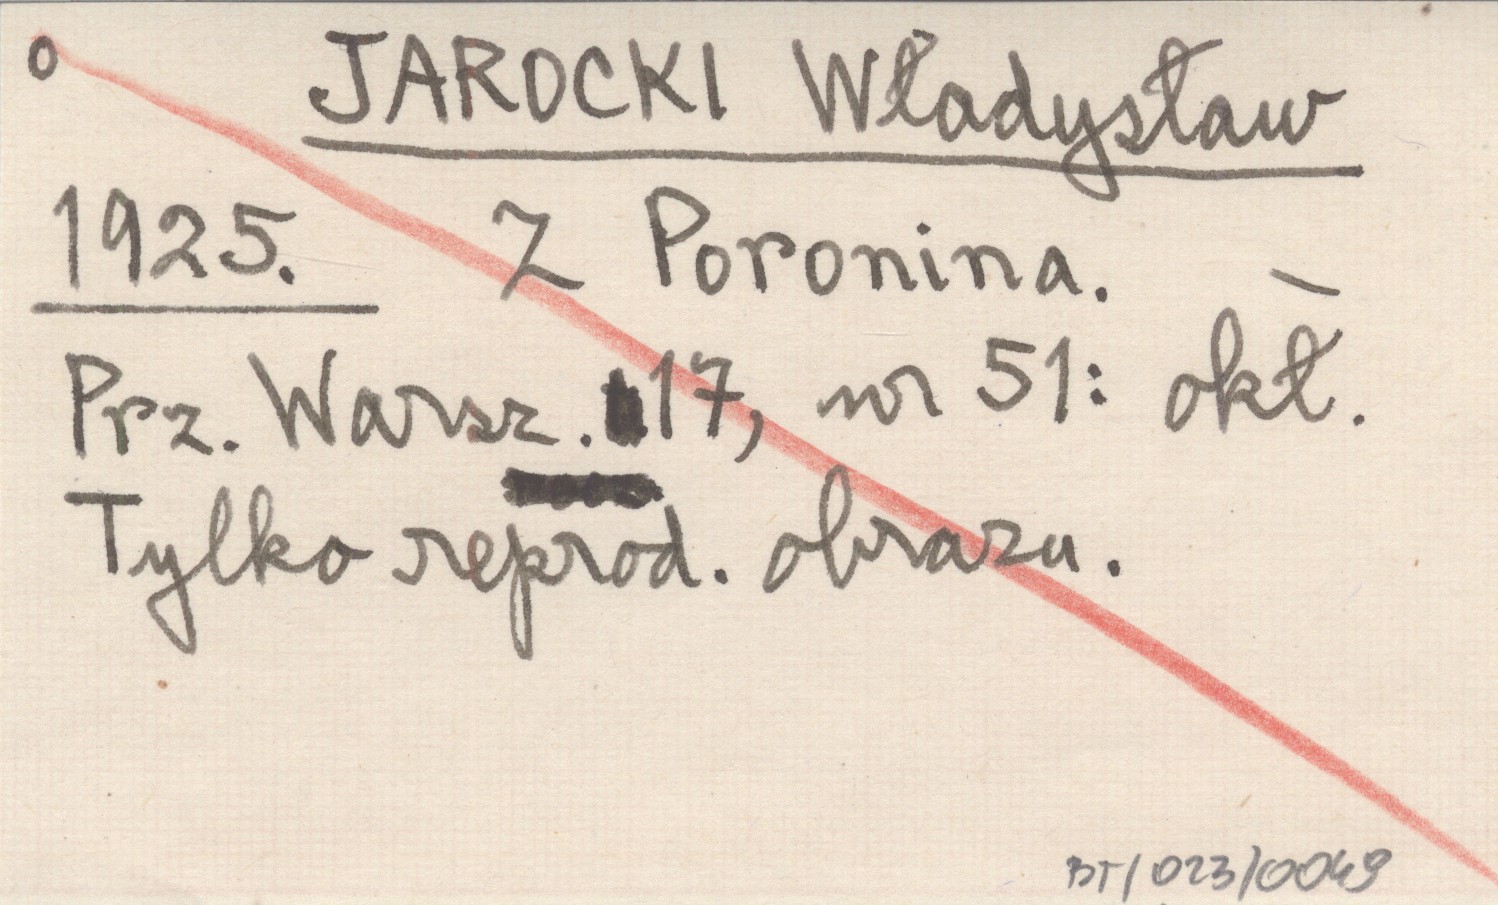 o JAROCKI Władysław
1925. Z Poronina.
Prz. Warsz. 17, nr 51: okł.
Tylko reprod. obrazu.
BT/023/0049